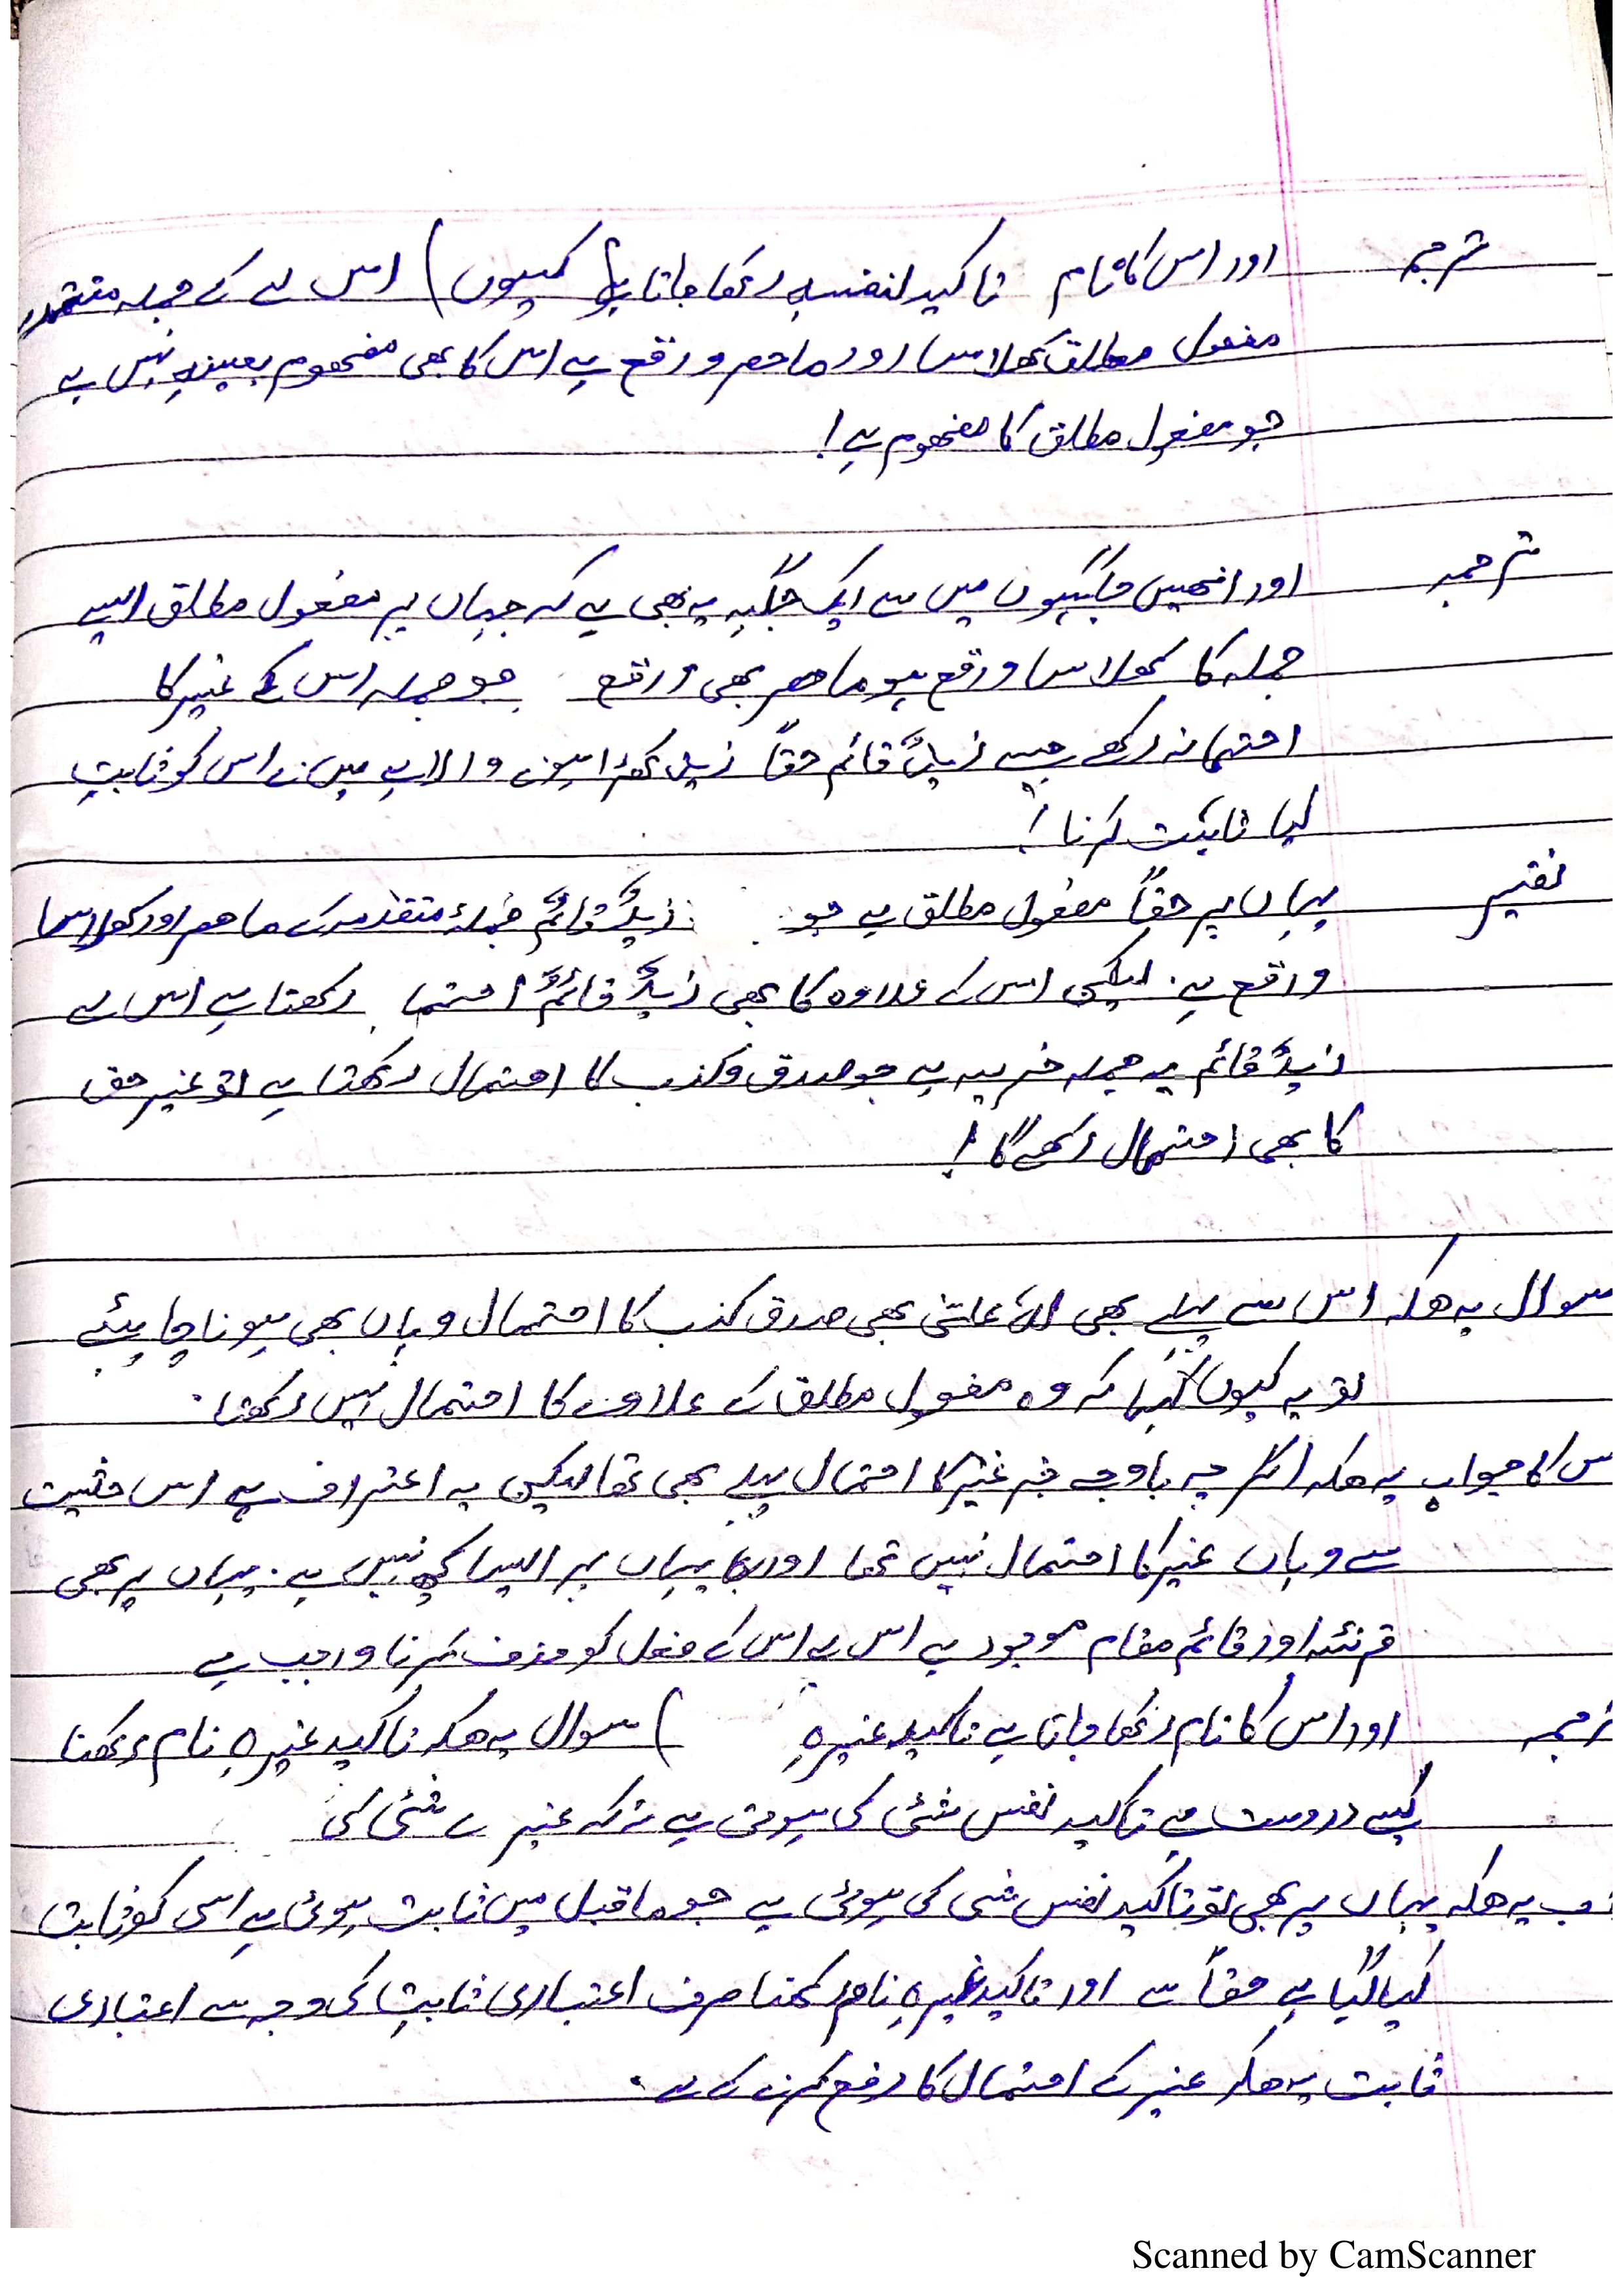 ترجمہ اور اس کا نام تاکید لنفسہٖ رکھا جاتا ہے (کیوں) اس لے کے جملہ متقدمہ
مفعول مطلق کھلاسا اور ماحصر واقع ہے اس کا بھی مفحھوم بعینہٖ نہیں ہے
جو مفعول مطلق کا مفحھوم ہے!
ترجمہ اور انھیں جگہوں میں سے ایک جگہ یہ بھی ہے کہ جہاں پر مفعول مطلق ایسے
جملہ کا کھلاسا واقع ہو ماحصر بھی واقع جو جملہ اس کے غیر کا
احتما نہ رکھے جیسے زیدٌ قائم حقاً زید کھڑا ہونے والا ہے میں نے اس کو ثابت
کیا ثابت کرنا!
تفسیر یہاں پر حقاً مفعول مطلق ہے جو زیدٌ قائمٌ جملۂ متقدمہ کے ماحصر اور کھلاسا
واقع ہے۔ لیکن اس کے علاوہ کا بھی زیدٌ قائمٌ احتما رکھتا ہے اس لے
زیدٌ قائم یہ جملہ خبریہ ہے جو صدق و کذب کا احتمال رکھتا ہے تو غیر حق
کا بھی احتمال رکھے گا!
سوال یہ ھیکہ اس سے پہلے بھی لہٗ علیَّ بھی صدق کذب کا احتمال وہاں بھی ہونا چاہیئے
تو یہ کیوں کہا کہ وہ مفعول مطلق کے علاوہ کا احتمال نہیں رکھتا۔
س کا جواب یہ ھیکہ اگر چہ باوجہ خبر غیر کا احتمال پہلے بھی تھا لیکن یہ اعتراف ہے اس حثیت
سے وہاں غیر کا احتمال نہیں تھا اور یہاں پر ایسا کچھ نہیں ہے۔ یہاں پر بھی
قرنئہ اور قائم مقام موجود ہے اس لے اس کے فعل کو حذف کرنا واجب ہے
ترجمہ اور اس کا نام رکھا جاتا ہے تاکید غیرہٖ ) سوال یہ ھیکہ تاکید غیرہٖ نام رکھنا
کیسے درست ہے تاکید نفس شئی کی ہوتی ہے نہ کہ غیرے شئی کی
وب یہ ھیکہ یہاں پر بھی تو تاکید نفس شی کی ہوئی ہے جو ماقبل میں ثابت ہوئی ہے اسی کو ثابت
کیا گیا ہے حقاً سے اور تاکید غیرہٖ نام رکھنا صرف اعتباری ثابت کی وجہ سے اعتباری
ثابت یہ ھیکہ غیر کے احتمال کا دفع کرنے کے لے۔
Scanned by CamScanner